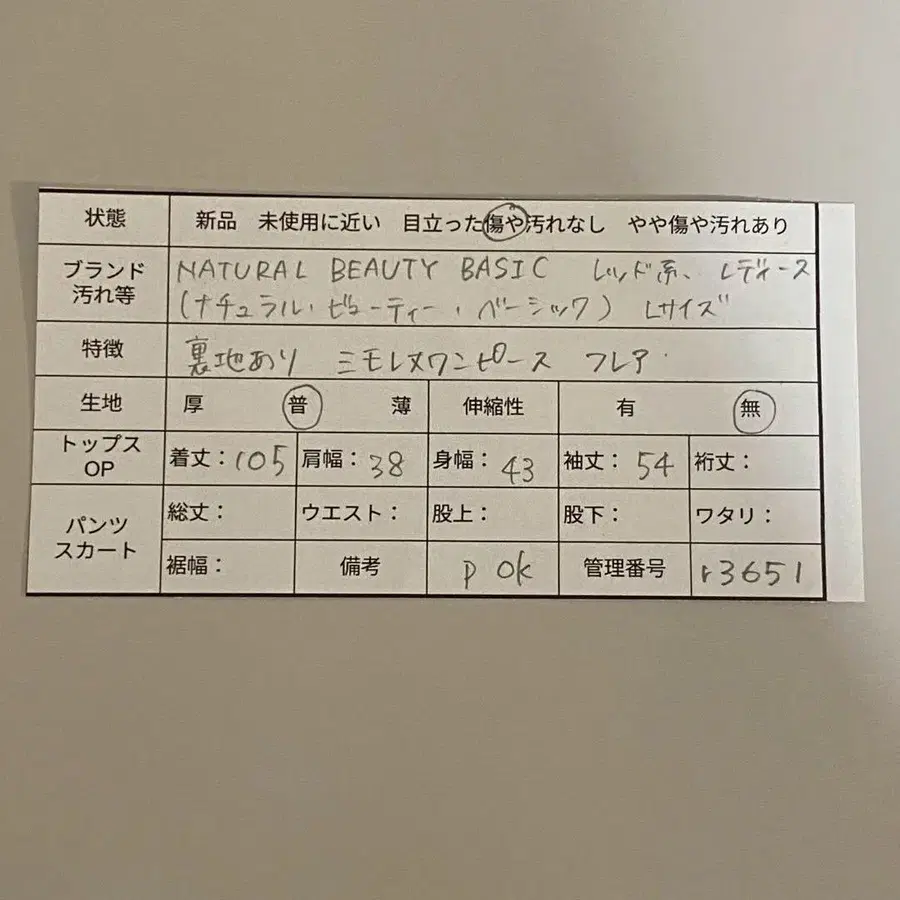 状態 新品 未使用に近い 目立った傷や汚れなし やや傷や汚れあり
ブランド 汚れ等 NATURAL BEAUTY BASIC レッド系、レディース
(ナチュラル・ビューティー・ベーシック) Lサイズ
特徴 裏地あり ミモレ丈ワンピース フレア
生地 厚 普 薄 伸縮性 有 無
トップス OP 着丈:105 肩幅:38 身幅:43 袖丈:54 裄丈:
パンツ スカート 総丈: ウエスト: 股上: 股下: ワタリ:
裾幅: 備考 P OK 管理番号 r3651